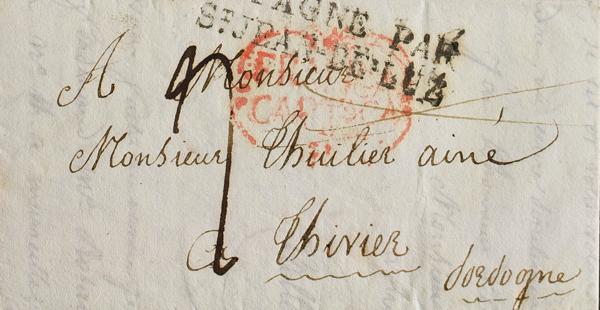 PAGNE PAR
ST JEAN-DE-LUZ
A Monsieur
Monsieur Thuilier ainé
a Thivier
dordogne